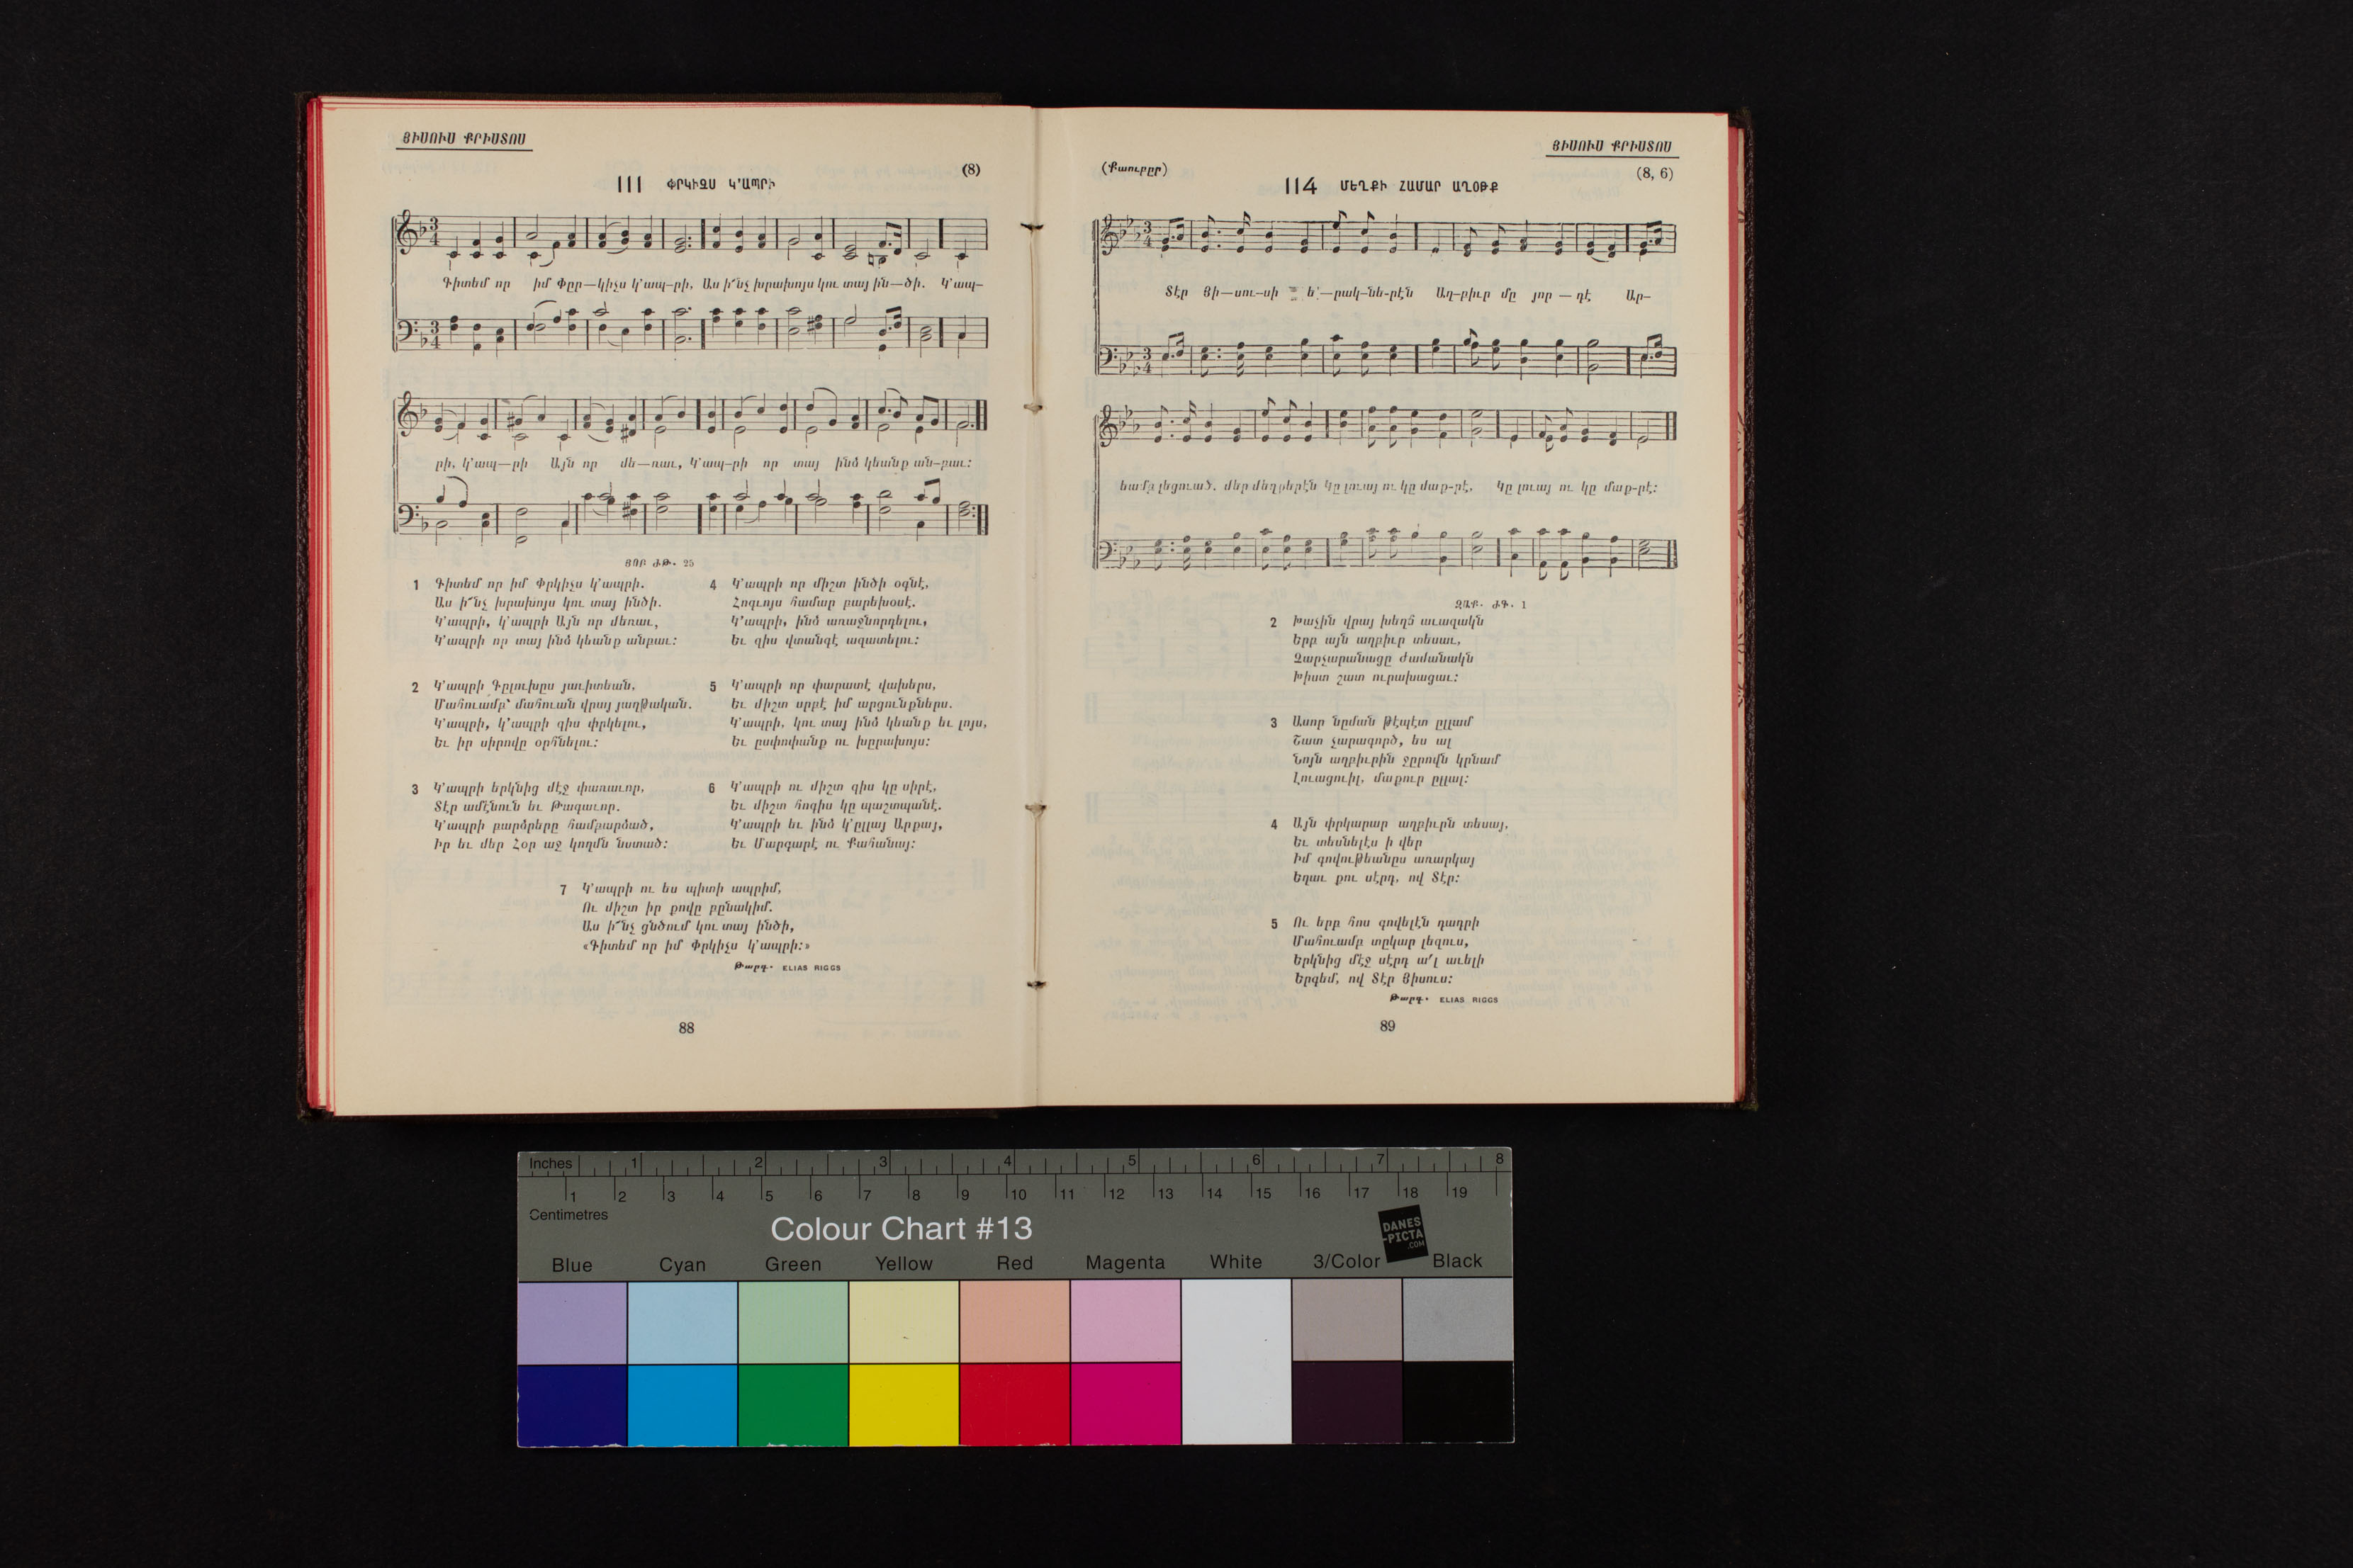 ՅԻՍՈՒՍ ՔՐԻՍՏՈՍ
(8)
111 ՓՐԿԻՉՍ Կ՚ԱՊՐԻ
Գիտեմ որ իմ Փըր—կիչս կ՚ապ—րի, Աս ի՜նչ խրախոյս կու տայ ին—ծի. Կ՚ապ—
րի, կ՚ապ—րի Այն որ մե—ռաւ, Կ՚ապ—րի որ տայ ինձ կեանք ան—բաւ:
ՅՈԲ ԺԹ. 25
1 Գիտեմ որ իմ Փրկիչս կ՚ապրի.
Աս ի՜նչ խրախոյս կու տայ ինծի.
Կ՚ապրի, կ՚ապրի Այն որ մեռաւ,
Կ՚ապրի որ տայ ինձ կեանք անբաւ:
2 Կ՚ապրի Գըլուխըս յաւիտեան,
Մահուամբ՝ մահուան վրայ յաղթական.
Կ՚ապրի, կ՚ապրի զիս փրկելու,
Եւ իր սիրովը օրհնելու:
3 Կ՚ապրի երկնից մէջ փառաւոր,
Տէր ամէնուն եւ Թագաւոր.
Կ՚ապրի բարձրերը համբարձած,
Իր եւ մեր Հօր աջ կողմն նստած:
4 Կ՚ապրի որ միշտ ինծի օգնէ,
Հոգւոյս համար բարեխօսէ.
Կ՚ապրի, ինձ առաջնորդելու,
Եւ զիս վտանգէ ազատելու:
5 Կ՚ապրի որ փարատէ վախերս,
Եւ միշտ սրբէ իմ արցունքներս.
Կ՚ապրի, կու տայ ինձ կեանք եւ լոյս,
Եւ ըսփոփանք ու խըրախոյս:
6 Կ՚ապրի ու միշտ զիս կը սիրէ,
Եւ միշտ հոգիս կը պաշտպանէ.
Կ՚ապրի եւ ինձ կ՚ըլլայ Արքայ,
Եւ Մարգարէ ու Քահանայ:
7 Կ՚ապրի ու ես պիտի ապրիմ,
Ու միշտ իր քովը բընակիմ.
Աս ի՜նչ ցնծում կու տայ ինծի,
«Գիտեմ որ իմ Փրկիչս կ՚ապրի:»
Թարգ. ELIAS RIGGS
88
ՅԻՍՈՒՍ ՔՐԻՍՏՈՍ
(Քաուըըր)
(8, 6)
114 ՄԵՂՔԻ ՀԱՄԱՐ ԱՂՕԹՔ
Տէր Յի—սու—սի ե՛—րակ—նե—րէն Աղ—բիւր մը յոր — դէ Ար—
եամբ լեցուած. մեր մեղքերէն Կը լուայ ու կը մաք—րէ, Կը լուայ ու կը մաք—րէ:
ԶԱՔ. ԺԳ. 1
2 Խաչին վրայ խեղճ աւազակն
Երբ այն աղբիւր տեսաւ,
Չարչարանացը ժամանակն
Խիստ շատ ուրախացաւ:
3 Ասոր նըման թէպէտ ըլլամ
Շատ չարագործ, ես ալ
Նոյն աղբիւրին ջըրովն կրնամ
Լուացուիլ, մաքուր ըլլալ:
4 Այն փրկարար աղբիւրն տեսայ,
Եւ տեսնելէս ի վեր
Իմ գովութեանըս առարկայ
Եղաւ քու սէրդ, ով Տէր:
5 Ու երբ հոս գովելէն դադրի
Մահուամբ տըկար լեզուս,
Երկնից մէջ սէրդ ա՛լ աւելի
Երգեմ, ով Տէր Յիսուս:
Թարգ. ELIAS RIGGS
89
Inches 1 2 3 4 5 6 7 8
1 2 3 4 5 6 7 8 9 10 11 12 13 14 15 16 17 18 19
Centimetres
Colour Chart #13
DANES
-PICTA
.COM
Blue Cyan Green Yellow Red Magenta White 3/Color Black